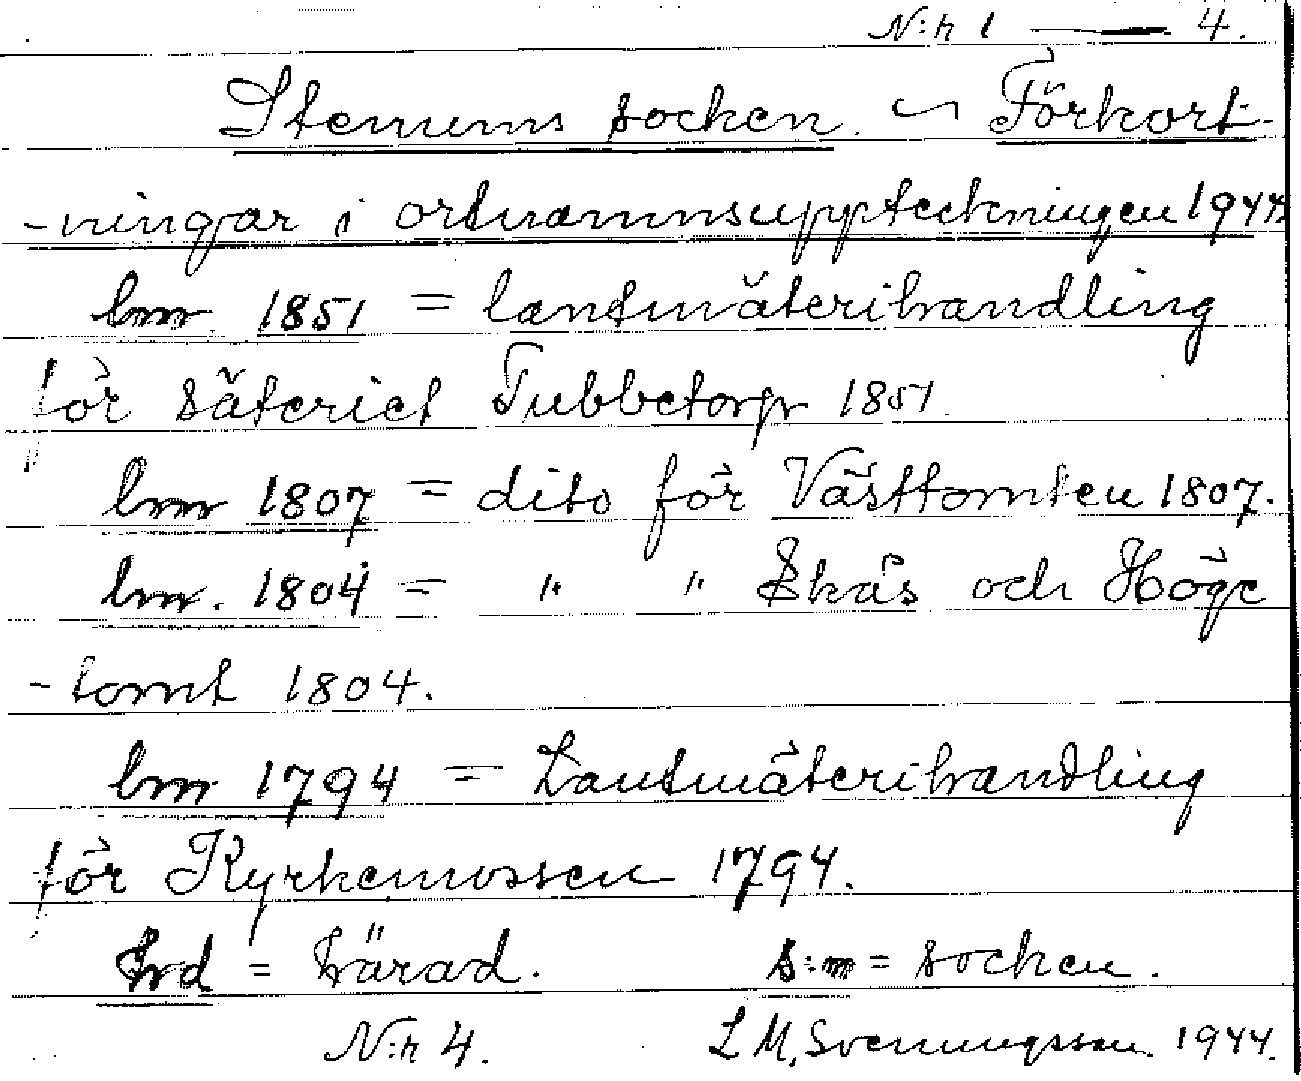 N:r 1 — 4.
Stenums socken. ~ Förkort-
-ningar i ortnamnsuppteckningen 1944.
lm 1851 = lantmäterihandling
för säteriet Tubbetorp 1851.
lm 1807 = dito för Västtomten 1807.
lm. 1804 = " " Skäs och Höge
-tomt 1804.
lm 1794 = Lantmäterihandling
för Kyrkemossen 1794.
hrd = härad. s:n = socken.
N:r 4. L M. Svenungsson. 1944.